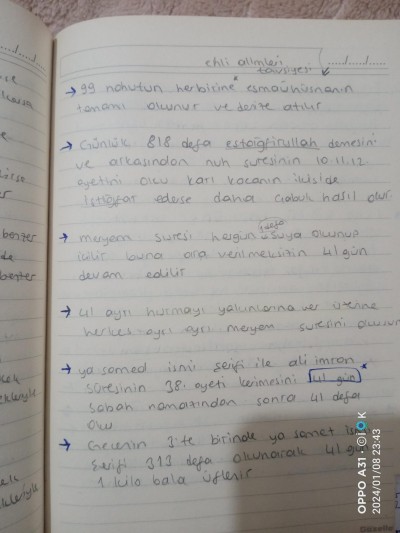 ehli alimleri
tavsiyesi
→ 99 nohutun herbirine esmaühüsnanın
tamamı okunur ve denize atılır
→ Günlük 818 defa estağfirullah demesini
ve arkasından nuh suresinin 10.11.12.
ayetini oku karı kocanın ikiside
istiğfar ederse daha çabuk hasıl olur
→ meryem suresi hergün 1 defa suya okunup
içilir buna ara verilmeksizin 41 gün
devam edilir
→ 41 ayrı hurmayı yakınlarına ver üzerine
herkes ayrı ayrı meryem suresini okusun
→ ya samed ismi şerifi ile ali imran
süresinin 38. ayeti kerimesini 41 gün
sabah namazından sonra 41 defa
oku
→ Gecenin 3'te birinde ya samet ism
şerifi 313 defa okunarak 41 gün
1 kilo bala üflenir
OPPO A31
2024/01/08 23:43